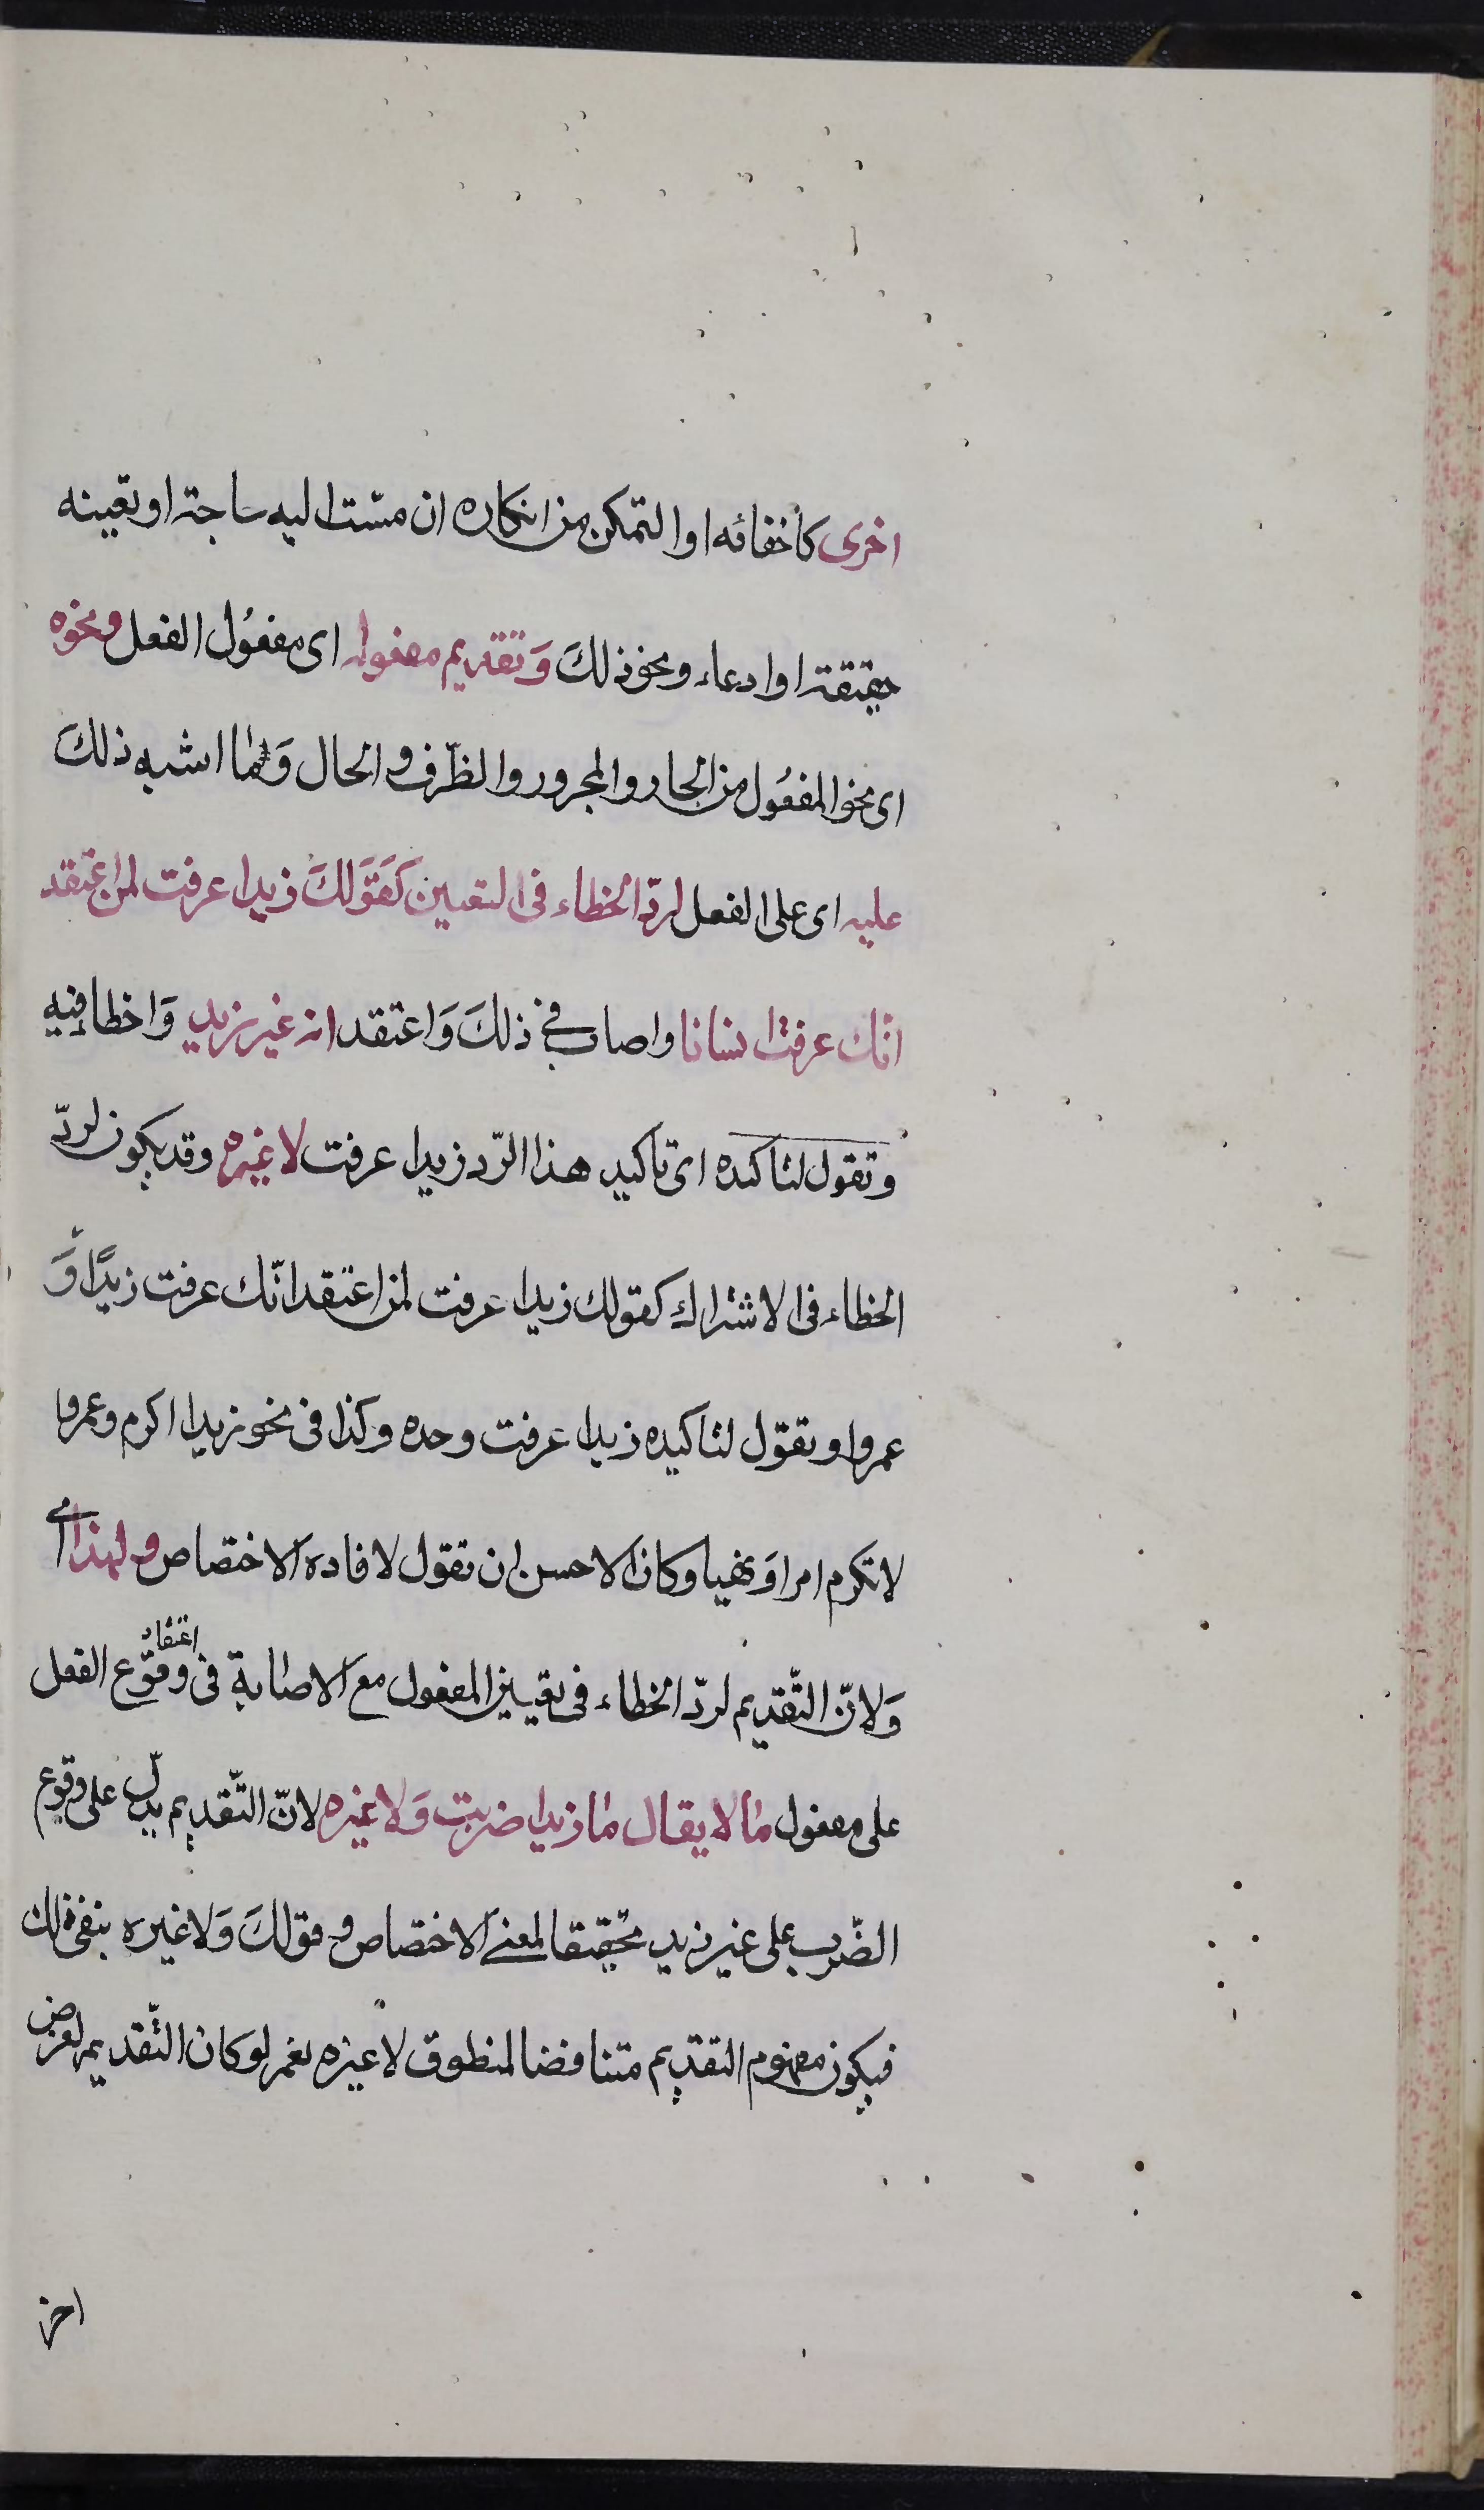 اخرى كأخفائه او التمكن من انكاره ان مسّت اليه حاجة او تعينه
حقيقة او ادعاء ونحو ذلكَ وَتقديم مفعوله اى مفعُول الفعل ونحوه
اى نحو المفعُول من الجار والمجرور والظّرف والحال وَما اشبه ذلكَ
عليه اى على الفعل لردّ الخطاء فى التعيين كقَوَلكَ زيدا عرفت لمن اعتقد
انّك عرفت انسانا واصاب في ذلكَ وَاعتقد انه غير زيد وَاخطا فيه
وتقول لتاكيده اى تاكيد هذا الرّد زيدا عرفت لا غيره وقد يكون لردّ
الخطاء فى الاشتراك كقولك زيدا عرفت لمن اعتقد انّك عرفت زيدًا وَ
عمروا وتقوّل لتاكيده زيدا عرفت وحده وكذا فى نحو زيدا اكرم وعمروا
لا تكرم امرا وَنهيا وكان الاحسن ان تقول لافادة الاختصاص ولهذا اي
وَلانّ التّقديم لردّ الخطاء فى تعيين المفعول مع الاصابة فى اعتقاد وقوّع الفعل
على مفعول ما لا يقال ما زيدا ضربت وَلا غيره لانّ التّقديم يدلّ على وقوع
الضّرب على غير زيد تحقيقا لمعنى الاختصاص وقولكَ وَلا غيره ينفى ذلك
فيكون مفهوم التقديم متناقضا لمنطوق لا غيره نعم لو كان التّقديم لغرض
اخر